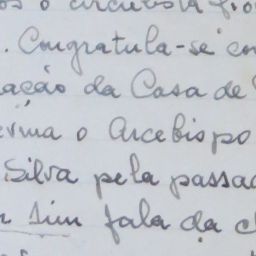 os o arcebispo
. Congratula-se con
ação da Casa de
evma o Arcebispo
Silva pela passa
sim fala da c